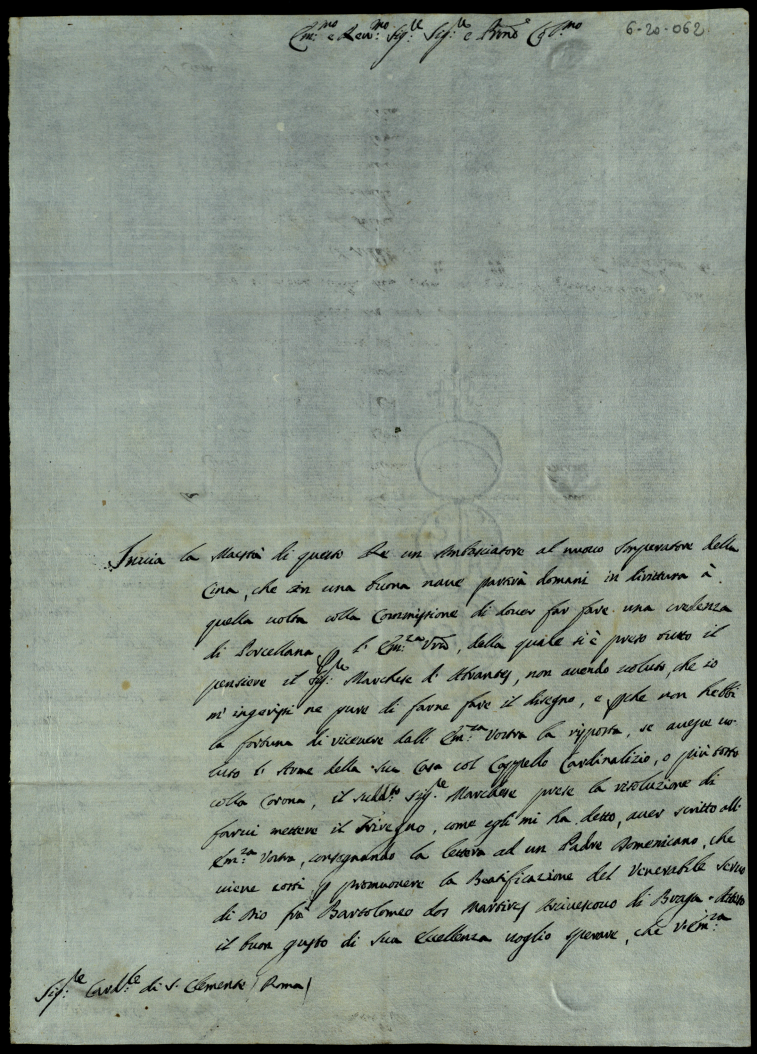 6-20-062
Em:mo e Rev:mo Sig:re Sig:re e Pron̄e
Invia la Maestà di questo Re un Ambasciatore al nuovo Imperatore della
Cina, che in una buona nave partirà domani in dirittura à
quella volta colla Commissione di dover far fare una credenza
di Porcellana p l'Em:za Vrā, della quale si è preso tutto il
pensiere il Sig:re Marchese d'Abrantes, non avendo voluto, che io
m'ingerissi ne pure di farne fare il disegno, e pche non hebbi
la fortuna di ricevere dall'Em:za Vostra la risposta, se avesse vo-
luto l'Arme della sua Casa col Cappello Cardinalizio, o più tosto
colla Corona, il sudd:to Sig:re Marchese prese la risoluzione di
farvi mettere il Trivegno, come egli mi ha detto, aver scritto all'
Em:za Vostra, consegnando la lettera ad un Padre Domenicano, che
viene costì p promuovere la Beatificazione del Venerabile Servo
di Dio frà Bartolomeo dos Martires Arcivescovo di Braga. Atteso
il buon gusto di sua Eccellenza voglio sperare, che v:Em:za
Sig:re Card:le di S. Clemente (Roma)